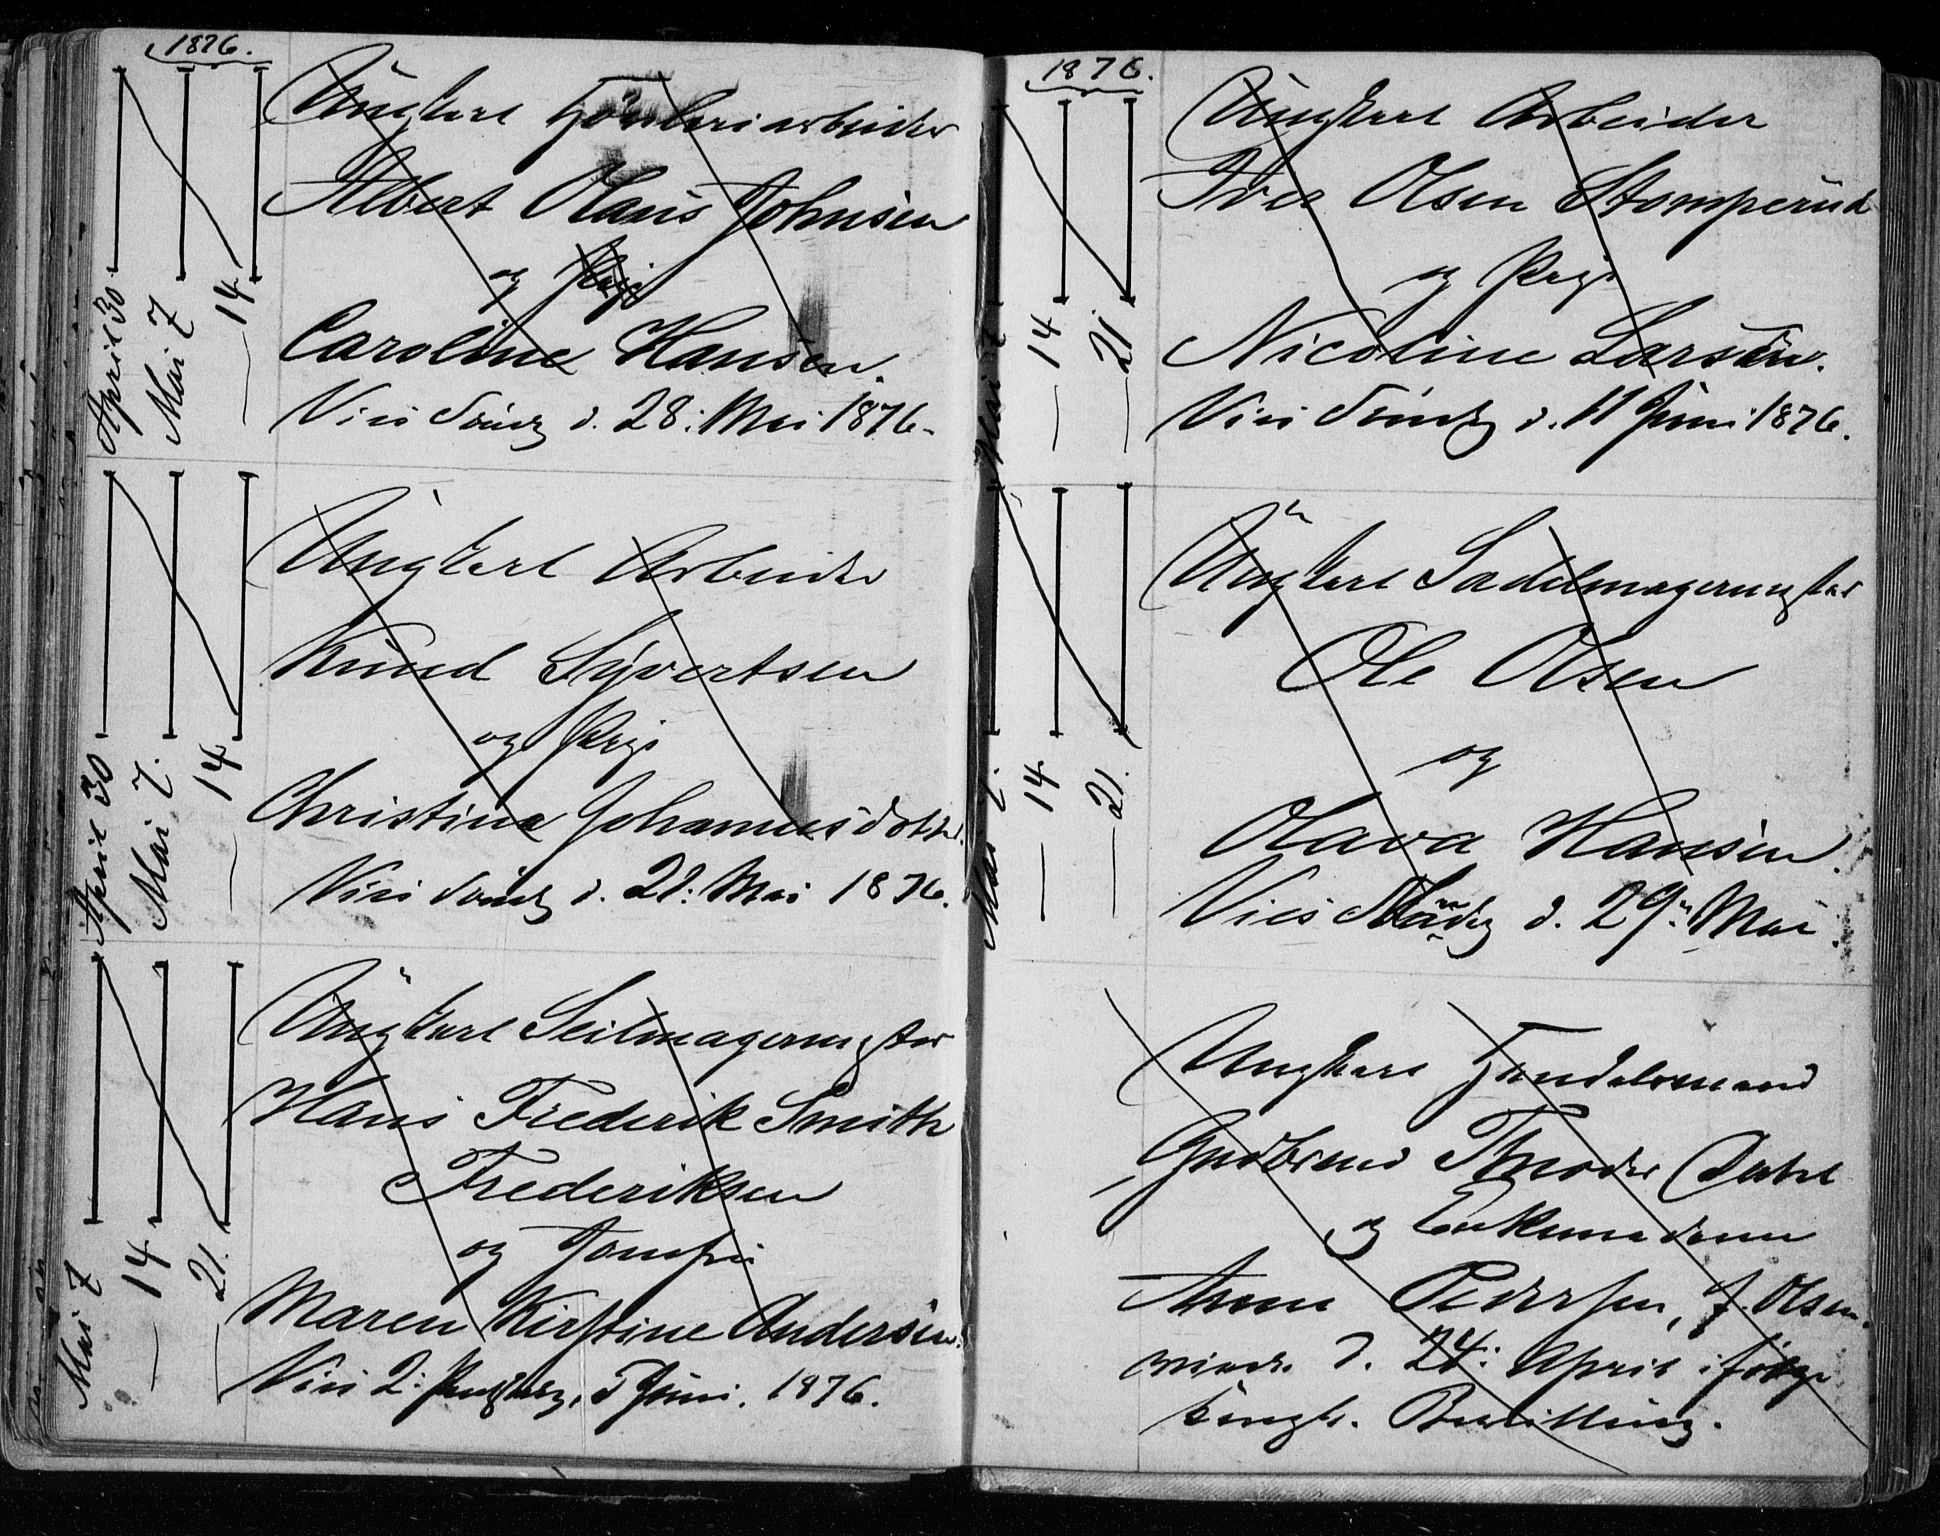 1876.
April 30
Mai 7
14
Ungkarl arbeider
Albert Olaus Johnsen
og Pige
Caroline Hansen.
Vies Søndg d. 28: Mai 1876.
April 30
Mai 7.
14
Ungkarl Arbeider
Knud Syvertsen
og Pige
Christina Johannesdotter.
Vies Søndg d. 21: Mai 1876.
Mai 7
14
21.
Ungkarl Seilmagermester
Hans Frederik Smith
Frederiksen
og Jomfru
Maren Kirstine Andersen.
Vies 2: Pintsedg, 5 Juni. 1876.
1876.
Mai 7
14
21
Ungkarl Arbeider
Iver Olsen Stomperud
og Pige
Nicoline Larsen.
Vies Søndg d. 11 Juni 1876.
Mai 7.
14
21.
Ungkarl Sadelmagermester
Ole Olsen
og
Olava Hansen.
Vies Mandg d. 29: Mai.
Ungkarl Handelsmand
Gudbrand Theodor Dahl
og Enkemadame
Anne Pedersen, f. Olsen.
viede d. 24: April ifølge
kongl. Bevilling.